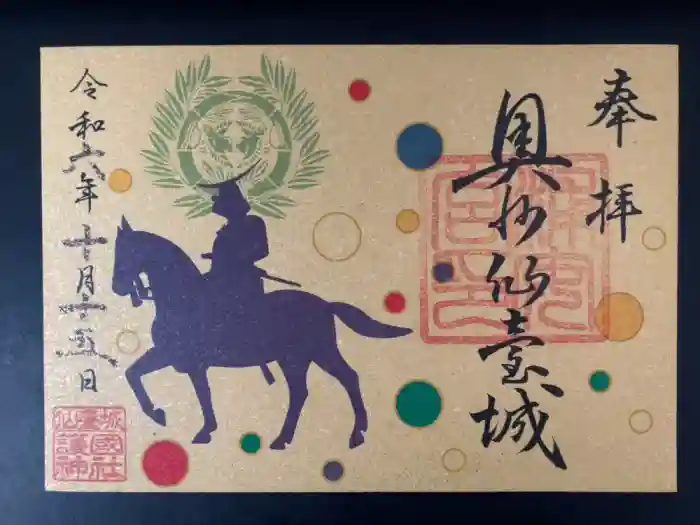 奉拝
奥州仙臺城
令和六年十月二十五日
仙臺城
護國
神社